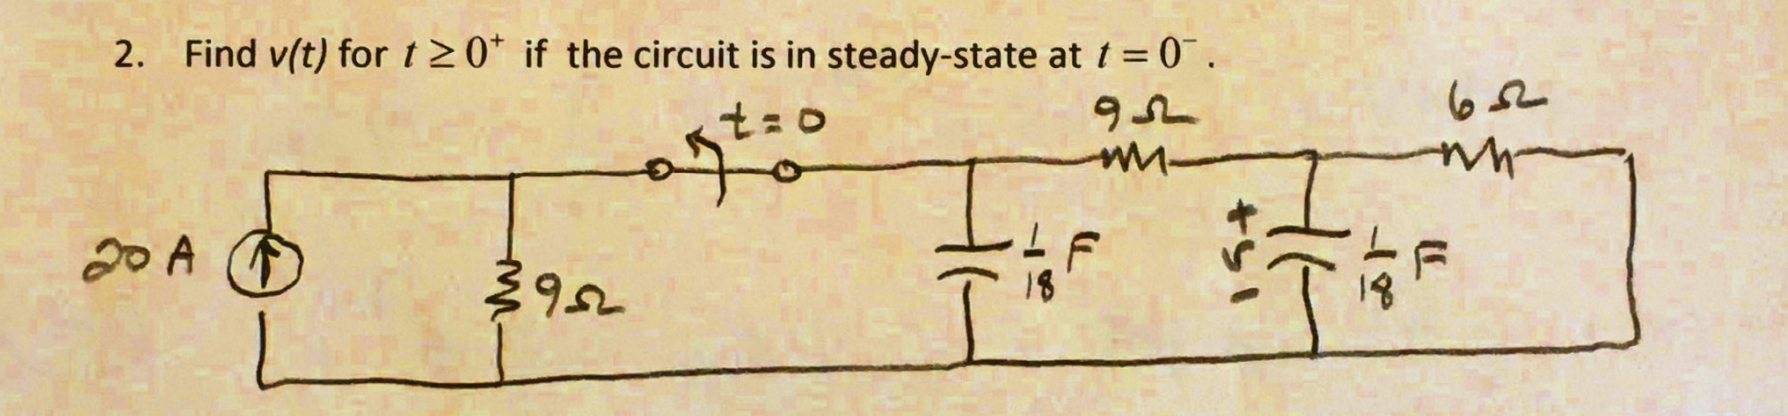 2. Find v(t) for t ≥ 0⁺ if the circuit is in steady-state at t = 0⁻.
t=0
9Ω
6Ω
20 A
9Ω
1/18 F
+
v
-
1/18 F